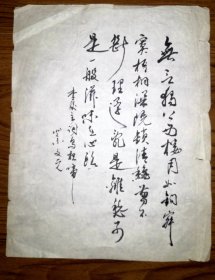 無言獨上西樓月如鉤寂
寞梧桐深院鎖清秋剪不
斷理還亂是離愁別
是一般滋味在心頭
李後主詞烏夜啼